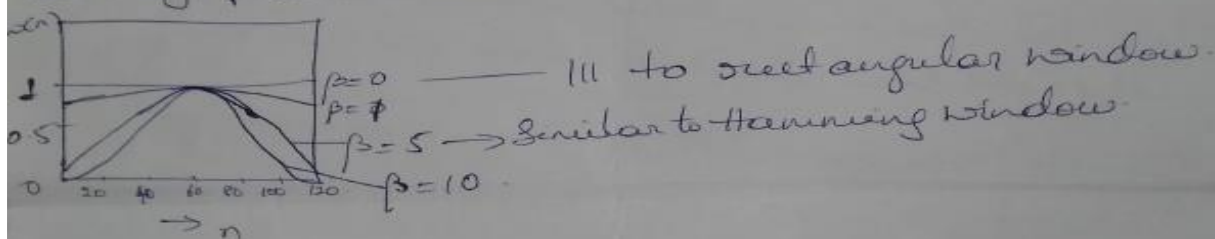 w(n)
1
0.5
0
20 40 60 80 100 120
→ n
β=0 —— lll to rectangular window.
β=1
β=5 → Similar to Hamming window
β=10.